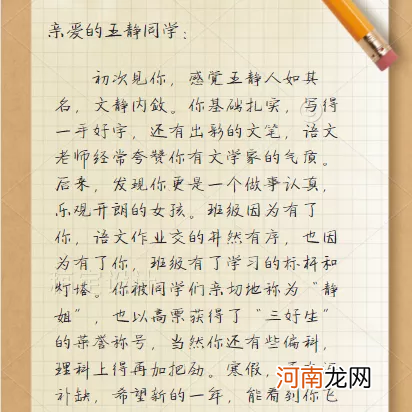 亲爱的王静同学：
初次见你，感觉王静人如其
名，文静内敛。你基础扎实，写得
一手好字，还有出彩的文笔，语文
老师经常夸赞你有文学家的气质。
后来，发现你更是一个做事认真，
乐观开朗的女孩。班级因为有了
你，语文作业交的井然有序，也因
为有了你，班级有了学习的标杆和
灯塔。你被同学们亲切地称为“静
姐”，也以高票获得了“三好生”
的荣誉称号，当然你还有些偏科，
理科上得再加把劲。寒假，
补缺，希望新的一年，能看到你飞
龙网